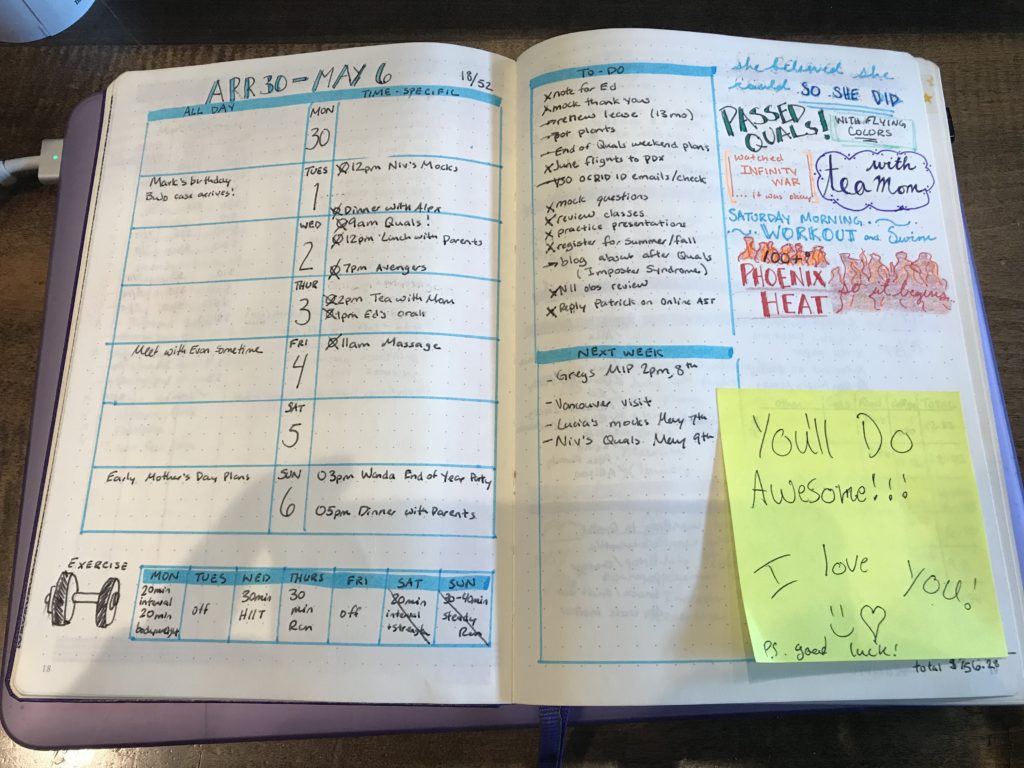 APR 30 - MAY 6
18/52
ALL DAY
TIME-SPECIFIC
MON
30
TUES
1
Mark's birthday
BuJo case arrives!
12pm Niv's Mocks
Dinner with Alex
WED
2
9am Quals!
12pm Lunch with Parents
7pm Avengers
THUR
3
2pm Tea with Mom
1pm Ed's orals
FRI
4
Meet with Evan sometime
11am Massage
SAT
5
SUN
6
Early Mother's Day Plans
03pm Wanda End of Year Party
05pm Dinner with Parents
EXERCISE
MON
TUES
WED
THURS
FRI
SAT
SUN
20min
interval
20min
bodyweight
off
30min
HIIT
30
min
Run
off
30min
interval
+strength
30-40min
steady
Run
18
TO-DO
note for Ed
mock thank yous
renew lease (13 mo)
pot plants
End of Quals weekend plans
June flights to PDX
450 ORBID ID emails/check
mock questions
review classes
practice presentations
register for Summer/fall
blog about after Quals
(Imposter Syndrome)
N11 obs review
Reply Patrick on Online AST
NEXT WEEK
- Greg's MIP 2pm, 8th
- Vancouver visit
- Lucia's mocks May 7th
- Niv's Quals May 9th
she believed she
could SO SHE DID
PASSED
QUALS!
WITH FLYING
COLORS
Watched
INFINITY
WAR
... it was okay
tea with
mom
SATURDAY MORNING
WORKOUT and Swim
100+°
PHOENIX
HEAT
so it begins...
You'll Do
Awesome!!!
I love You!
P.S. good luck!
total $156.28